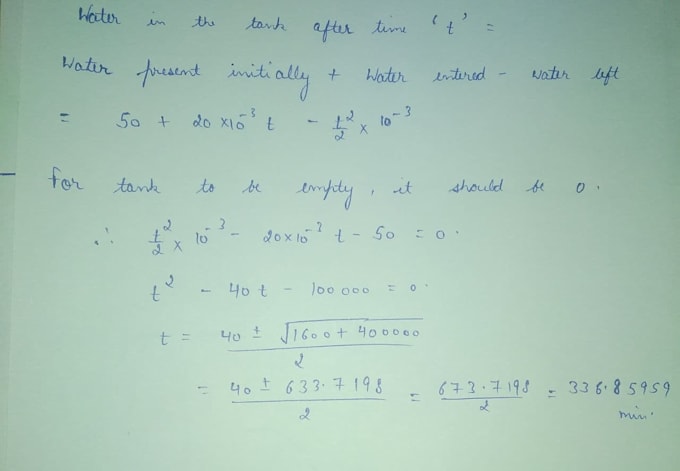 Water in the tank after time 't' =
Water present initially + Water entered - water left
= 50 + 20 x 10⁻³ t - t²/2 x 10⁻³
For tank to be empty, it should be 0.
∴ t²/2 x 10⁻³ - 20 x 10⁻³ t - 50 = 0.
t² - 40t - 100000 = 0.
t = (40 ± √(1600 + 400000))/2
= (40 ± 633.7198)/2 = 673.7198/2 = 336.85959 min.